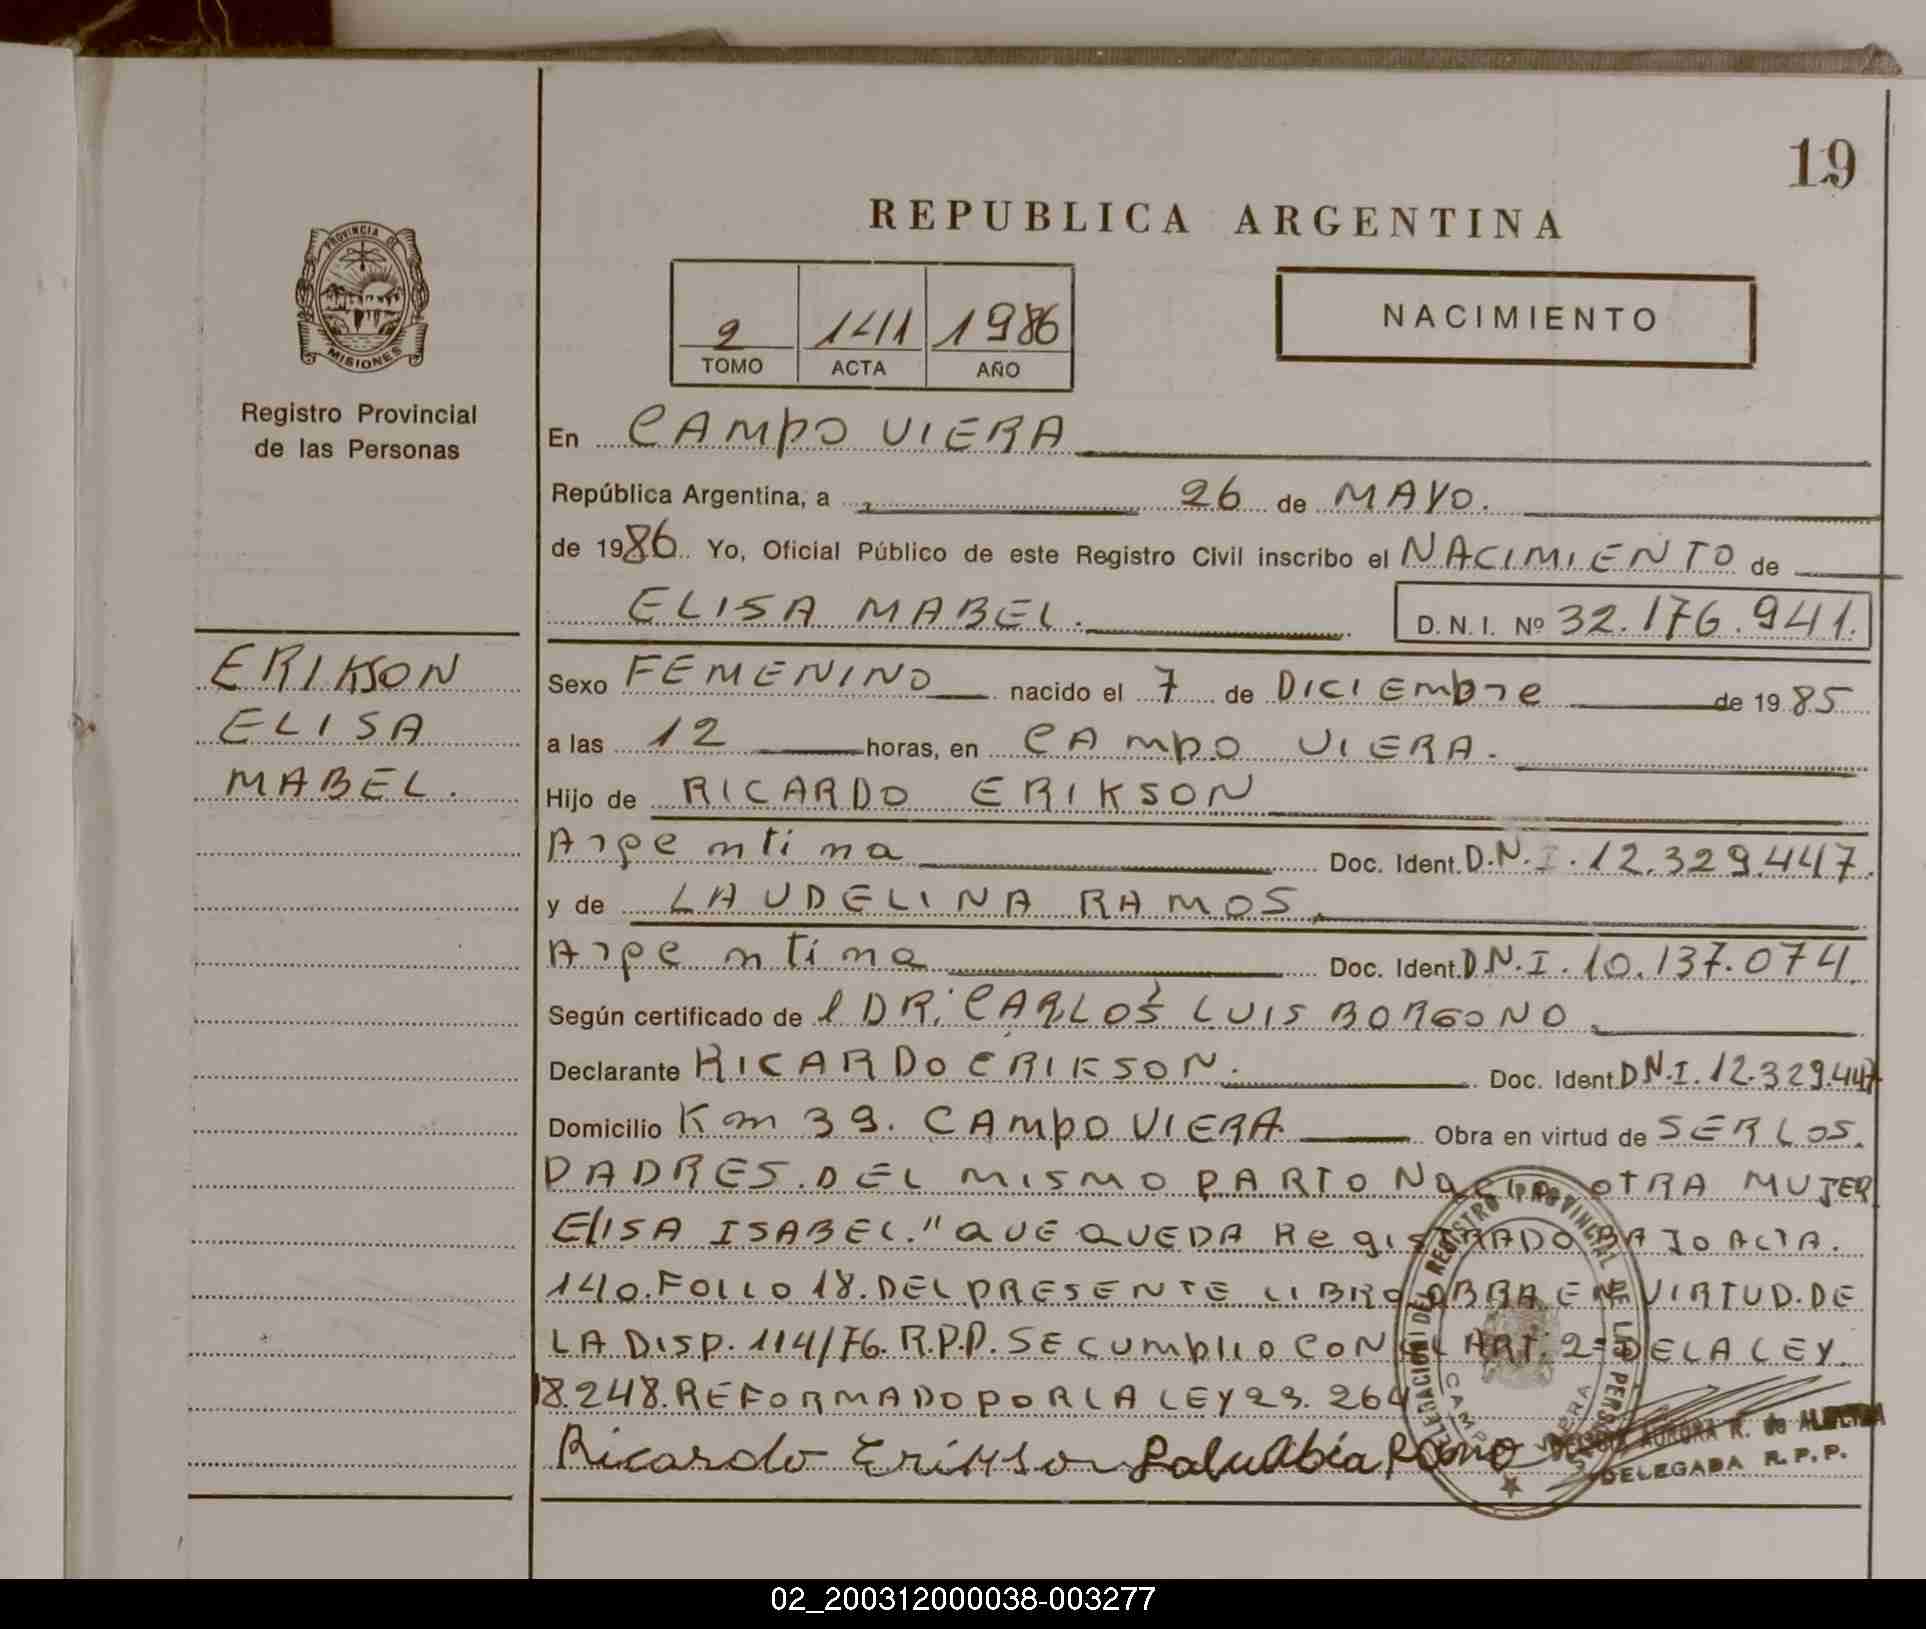 19
REPUBLICA ARGENTINA
PROVINCIA DE
MISIONES
Registro Provincial
de las Personas
2 141 1986
TOMO ACTA AÑO
NACIMIENTO
En CAMPO VIERA
República Argentina, a 26 de MAYO.
de 1986 Yo, Oficial Público de este Registro Civil inscribo el NACIMIENTO de
ELISA MABEL. D. N. I. Nº 32.176.941.
ERIKSON
ELISA
MABEL.
Sexo FEMENINO nacido el 7 de DICIEmbre de 1985
a las 12 horas, en CAMPO VIERA.
Hijo de RICARDO ERIKSON
Argentina Doc. Ident. D.N.I. 12.329.447.
y de LAUDELINA RAMOS
Argentina Doc. Ident. DN.I. 10.137.074
Según certificado de l DR. CARLOS LUIS BORGONO
Declarante RICARDO ERIKSON. Doc. Ident. DN.I. 12.329.447
Domicilio Km 39. CAMPO VIERA. Obra en virtud de SER LOS.
PADRES. DEL MISMO PARTO NACIO OTRA MUJER
ElISA ISABEL." QUE QUEDA RegISTRADO BAJO ACTA.
140. FOLIO 18. DEL PRESENTE LIBRO OBRA EN VIRTUD. DE
LA DISP. 114/76. R.P.P. SE CUMPLIO CON EL ART. 2º DE LA LEY.
18.248. REFORMADO POR LA LEY 23.264
Ricardo Erikson
DELEGACION DEL REGISTRO PROVINCIAL DE LAS PERSONAS
CAMPO VIERA
AURORA R. de ALMEIDA
DELEGADA R.P.P.
02_200312000038-003277